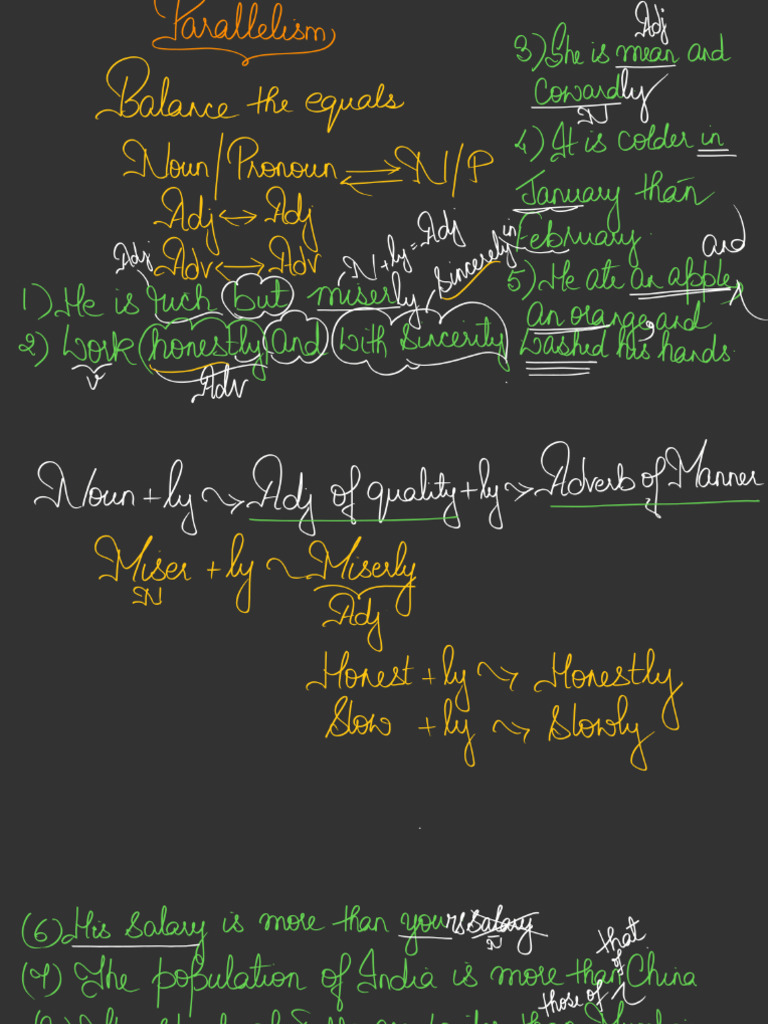 Parallelism
Balance the equals
Noun/Pronoun ⇌ N/P
Adj ↔ Adj
Adv ↔ Adv
Adj
N+ly = Adj
Sincerely
1) He is rich but miserly
2) Work honestly and with sincerity
V
Adv
Adj
3) She is mean and
Cowardly
N
4) It is colder in
January than
in February
and
5) He ate an apple,
an orange, and
washed his hands.
Noun + ly → Adj of quality + ly → Adverb of Manner
Miser + ly ~ Miserly
N
Adj
Honest + ly → Honestly
Slow + ly → Slowly
(6) His salary is more than yours salary
N
that
of
(7) The population of India is more than China
those of